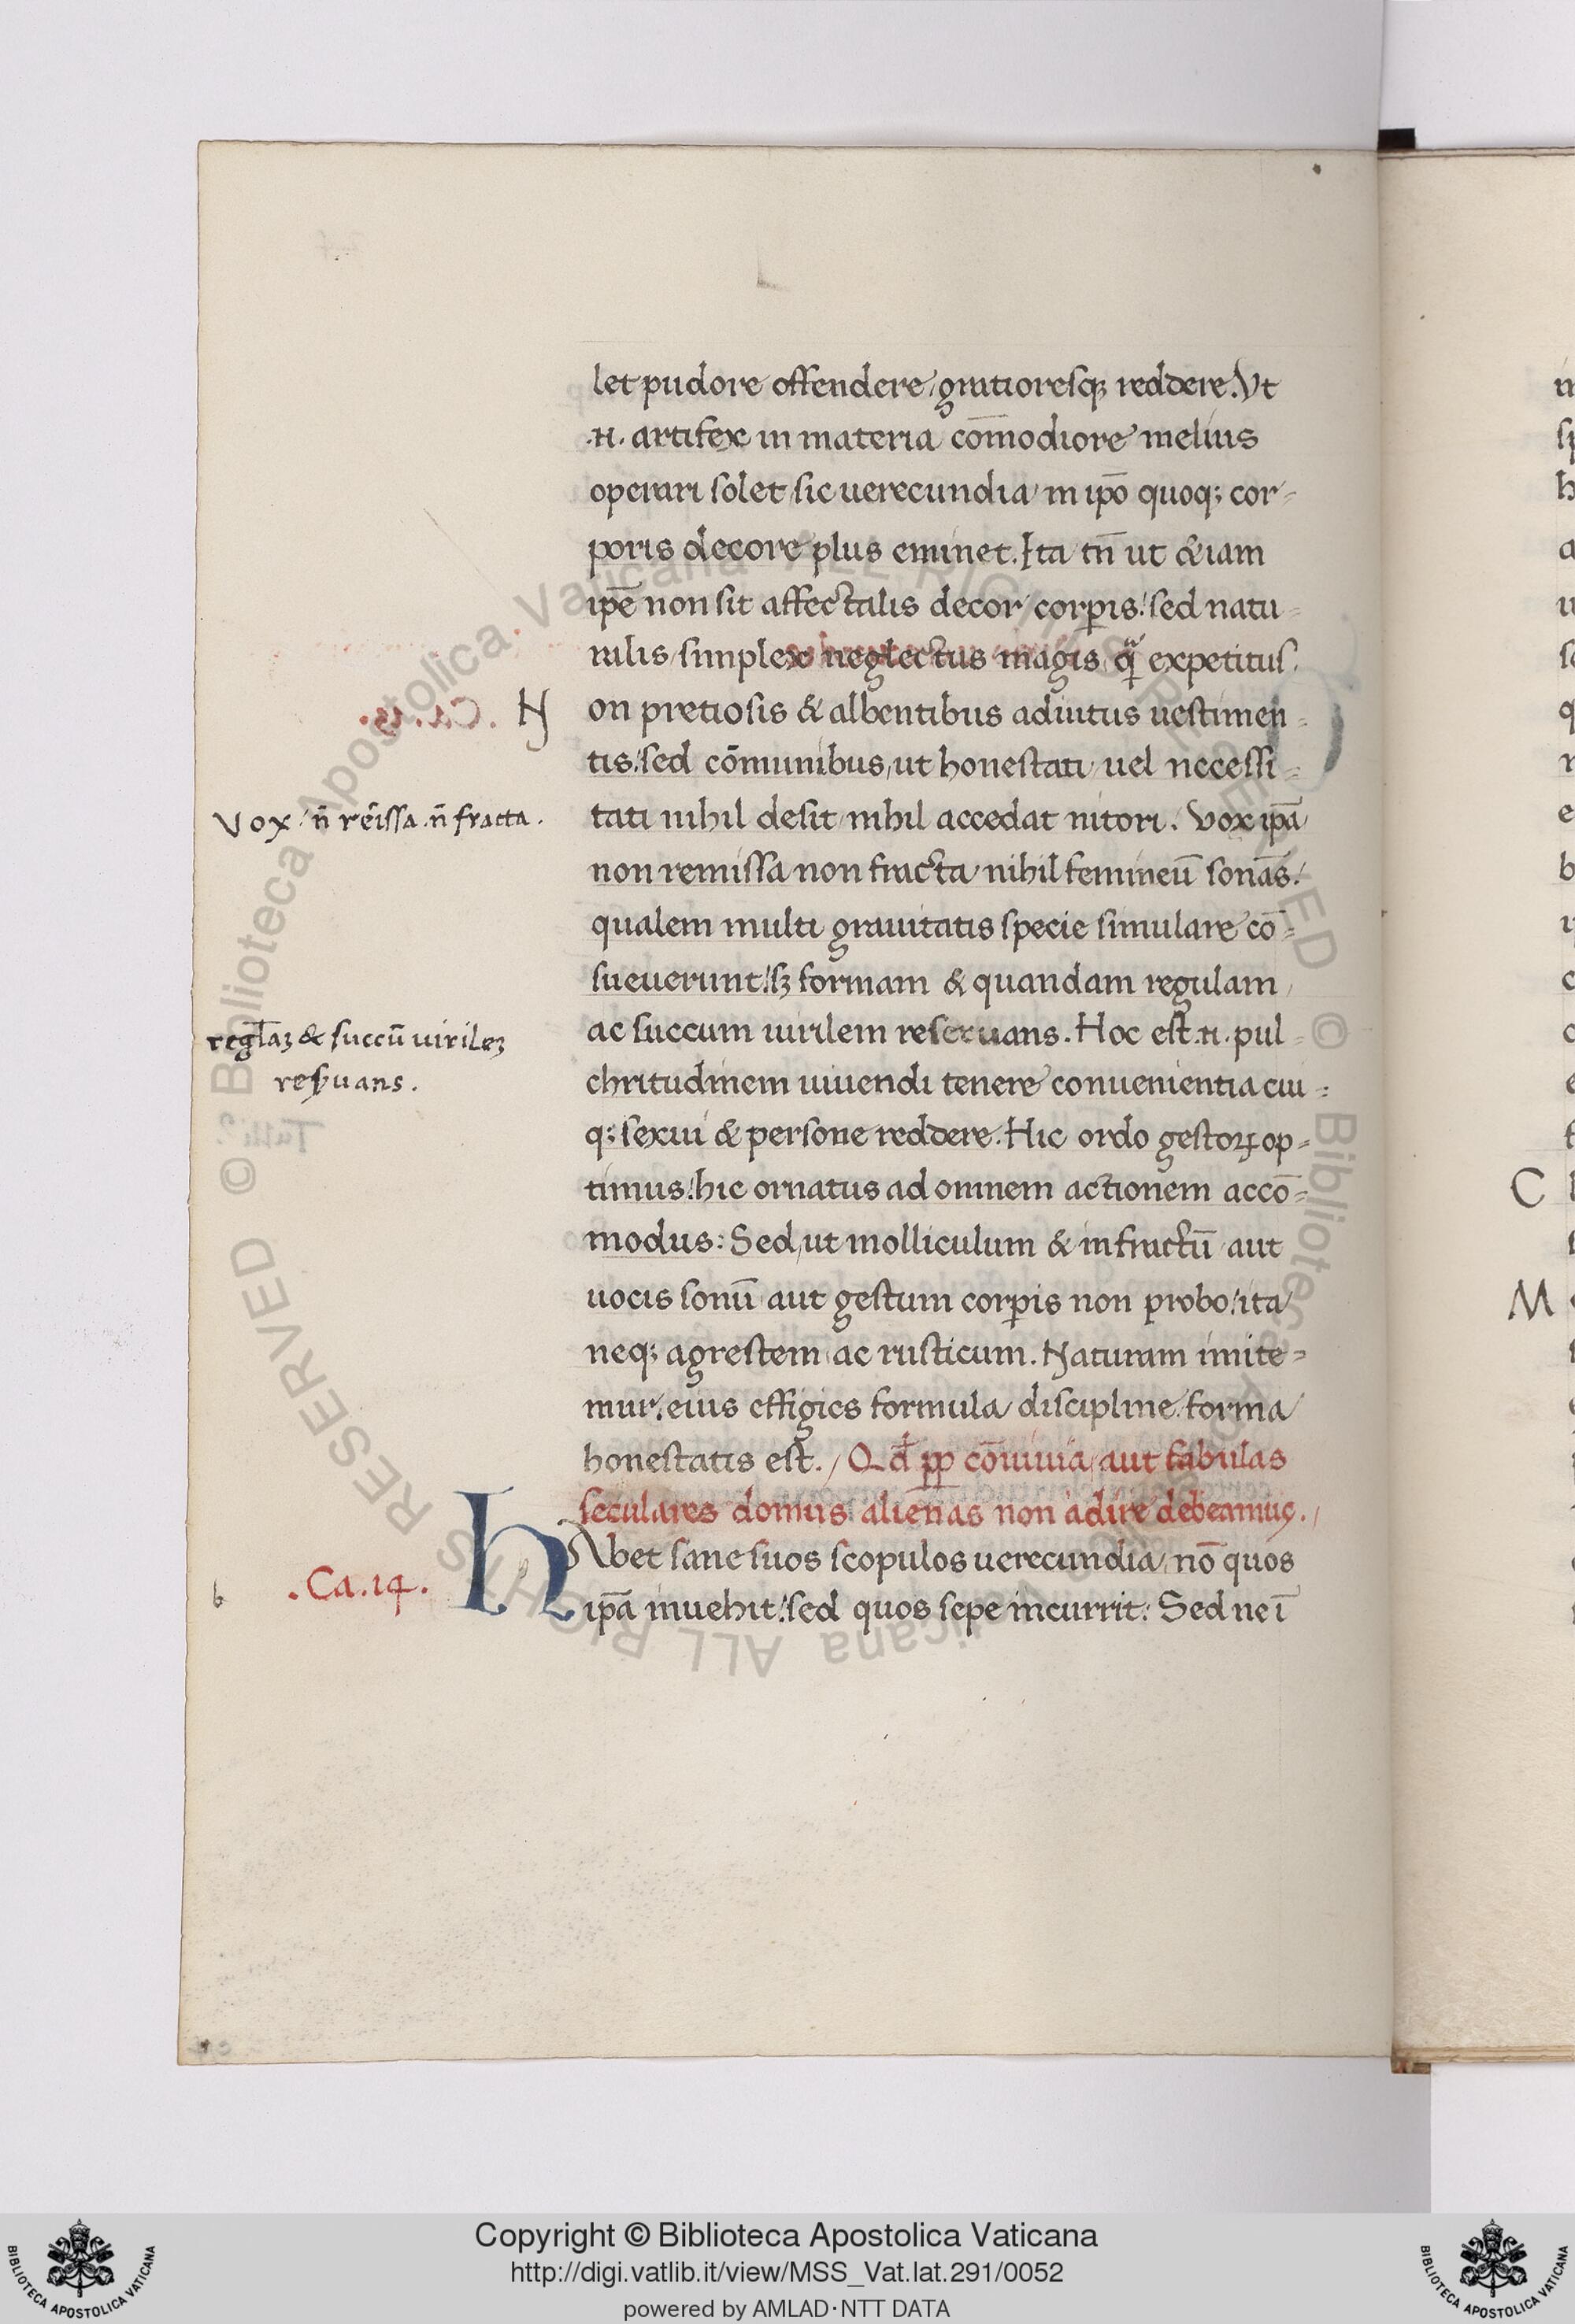 let pudore offendere, gratioresq; reddere. Vt
.n. artifex in materia cōmodiore melius
operari solet, sic uerecundia in ip̄o quoq; cor-
poris decore plus eminet. Ita tn̄ ut etiam
ip̄e non sit affectalis decor corꝑis: sed natu-
ralis, simplex neglectus magis q̃ expetitus.
Non pretiosis & albentibus adiutus uestimen-
tis: sed cōmunibus, ut honestati uel necessi-
Vox n̄ rēissa .n̄ fracta.
tati nihil desit, nihil accedat nitori. Vox ip̄a
non remissa non fracta, nihil femineū sonās:
qualem multi grauitatis specie simulare cō-
sueuerunt: sꝫ formam & quandam regulam
regl̄aꝫ & succū uirileꝫ
reẜuans.
ac succum uirilem reseruans. Hoc est .n. pul-
chritudinem uiuendi tenere conuenientia cui-
q; sexui & persone reddere. Hic ordo gestoꝝ op-
timus: hic ornatus ad omnem actionem accō-
modus: Sed, ut molliculum & infractū aut
uocis sonū aut gestum corꝑis non probo: ita
neq; agrestem ac rusticum. Naturam imite-
mur. eius effigies formula discipline, forma
honestatis est. Qd̄ ꝓꝑ cōuiuia aut fabulas
seculares domus alienas non adire debeamus.
.Ca.14.
hAbet sane suos scopulos uerecundia, nō quos
b
ip̄a inuehit: sed quos sepe incurrit: Sed ne ī
C
M
© Biblioteca Apostolica Vaticana ALL RIGHTS RESERVED © Biblioteca Apostolica Vaticana ALL RIGHTS RESERVED
Copyright © Biblioteca Apostolica Vaticana
http://digi.vatlib.it/view/MSS_Vat.lat.291/0052
powered by AMLAD·NTT DATA
BIBLIOTECA APOSTOLICA VATICANA
BIBLIOTECA APOSTOLICA VATICANA